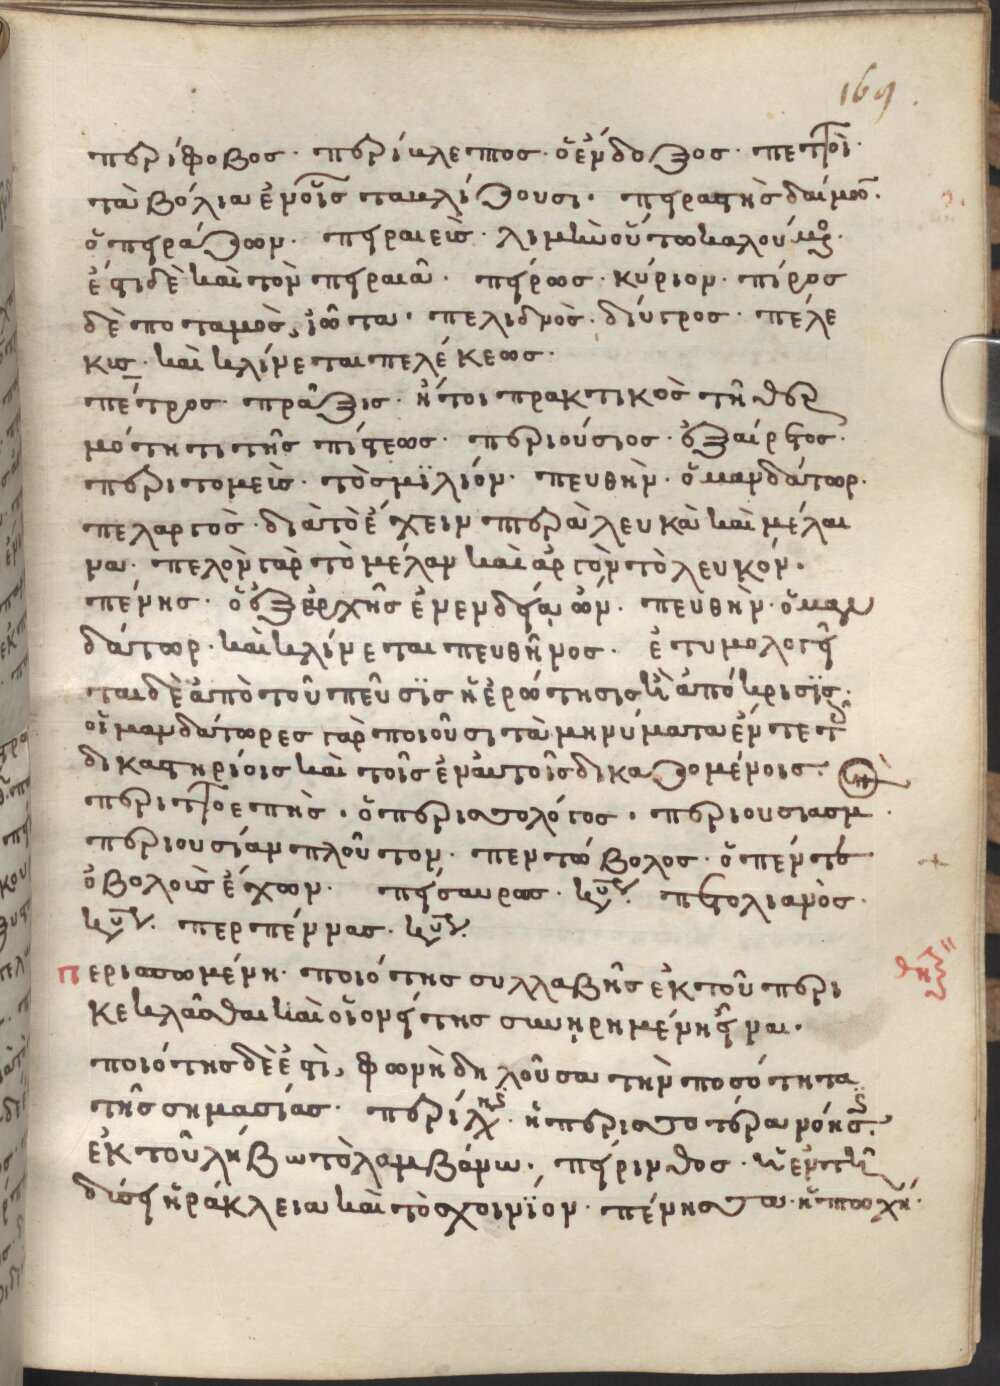 169
περίφοβος · περίκλεπτος · ὁ ἔνδοξος · πεττοὶ ·
τὰ βόλια ἐν οἷς ταυλίζουσι · πειρατὴς δαίμων ·
ὁ πειράζων · πειραεὺς · λιμὴν οὕτω καλούμενος ·
ἔστι δὲ καὶ τὸν πειραιᾶ · πείρως · κύριον · πίρος
δὲ ποταμὸς, ἰῶτα · πελιδνὸς · δίυγρος · πέλε
κις · καὶ κλίνεται πελέκεως ·
πέτρος · πρᾶξις · ἤτοι πρακτικὸς τῇ θερ
μότητι τῆς πίστεως · περιούσιος · ἐξαίρετος ·
περιτομεῖς · τὸ σμιλίον · πευθὴν · ὁ μανδάτωρ ·
πελαργὸς · διὰ τὸ ἔχειν πτερὰ λευκὰ καὶ μέλαι
να · πελὸν γὰρ τὸ μέλαν καὶ ἀργὸν τὸ λευκόν ·
πένης · ὁ ἐξ ἀρχῆς ἐν ἐνδείᾳ ὤν · πευθὴν · ὁ μαν
δάτωρ · καὶ κλίνεται πευθῆνος · ἐτυμολογεῖ
ται δὲ ἀπὸ τοῦ πεῦσις ἡ ἐρώτησις καὶ ἀπόκρισις ·
οἱ μανδάτωρες γὰρ ποιοῦσι τὰ μηνύματα ἔν τε τοῖς
δικαστηρίοις καὶ τοῖς ἐν αὐτοῖς δικαζομένοις ·
περιττοεπὴς · ὁ περισσολόγος · περιουσιασμ ·
περιουσίαν πλοῦτον · πεντώβολος · ὁ πέντε
ὀβολοὺς ἔχων · πείσαυρας · κύριον · πετολιανὸς ·
κύριον · περπέννας · κύριον ·
περισπωμένη · ποιότης συλλαβῆς ἐκ τοῦ περι
κεκλᾶσθαι καὶ οἱονεί τῆς συνῃρημένη εἶναι ·
ποιότης δὲ ἐστὶ, φωνὴ δηλοῦσα τὴν ποσότητα
τῆς σημασίας · περίλ · ἡ περισσοτέρα μόνης ·
ἐκ τοῦ λήβω τὸ λαμβάνω · πείρινθος · ἡ ἐν τῇ
δύσει ἡράκλεια καὶ τὸ σχοινίον · πένησσα · ἡ πτωχή ·